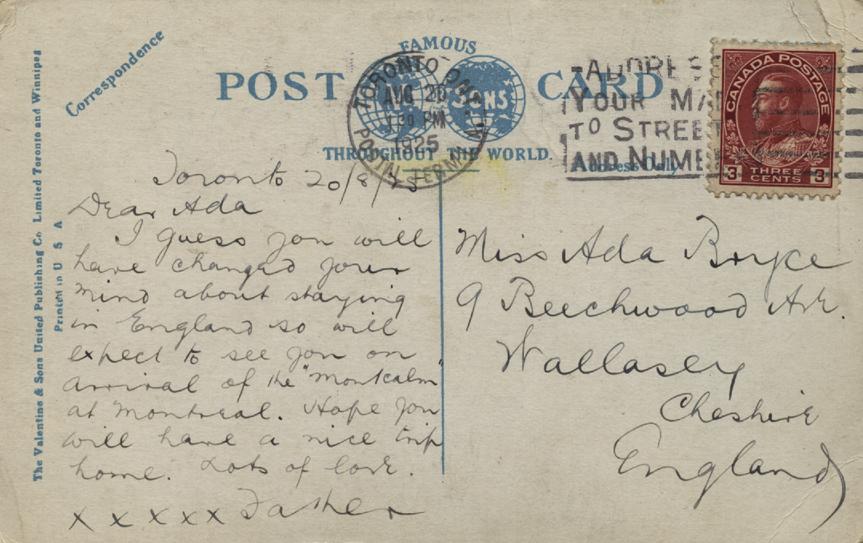 Correspondence
FAMOUS
POST CARD
SONS
THROUGHOUT THE WORLD.
Address Only
TORONTO ONT.
AUG 20
PM
1925
POSTAL TERM. A
ADDRESS
YOUR MA
TO STREE
AND NUMB
CANADA POSTAGE
3 THREE CENTS 3
The Valentine & Sons United Publishing Co. Limited Toronto and Winnipeg
Printed in U S A
Toronto 20/8/25
Dear Ada
I guess you will
have changed your
mind about staying
in England so will
expect to see you on
arrival of the "Montcalm"
at Montreal. Hope you
will have a nice trip
home. Lots of love.
x x x x x Father
Miss Ada Boyce
9 Beechwood Av.
Wallasey
Cheshire
England